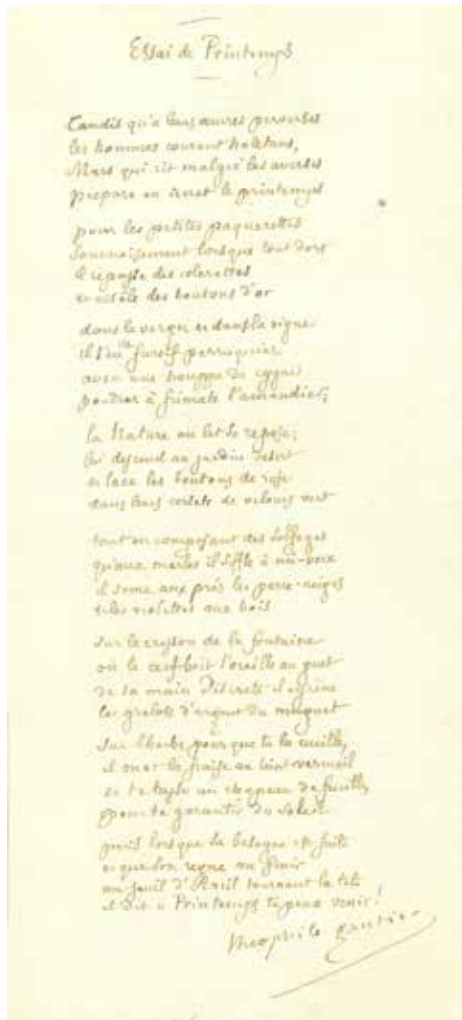 Essai de Printemps
Tandis qu'a leurs œuvres perverses
les hommes courent haletans,
Mars qui rit malgré les averses
prépare en secret le printemps
pour les petites paquerettes
Sournoisement lorsque tout dort
il repasse des colerettes
et cisèle des boutons d'or
dans le verger et dans la vigne
il s'en va furtif perruquier
avec une houppe de cygne
poudrer à frimats l'amandier;
la Nature au lit se repose;
lui descend au jardin désert
et lace les boutons de rose
dans leurs corsets de velours vert
tout en composant des solfèges
qu'aux merles il siffle à mi-voix
il sème aux prés les perce-neiges
et les violettes aux bois
sur le cresson de la fontaine
où le cerf boit l'oreille au guet
de sa main discrète il égrène
les grelots d'argent du muguet
sur l'herbe pour que tu la cueilles,
il met la fraise au teint vermeil
et te un chapeau de feuilles
pour te garantir du soleil
puis lorsque la besogne est faite
et que son règne va finir
au seuil d'Avril tournant la tête
il dit Printemps tu peux venir!
théophile gautier